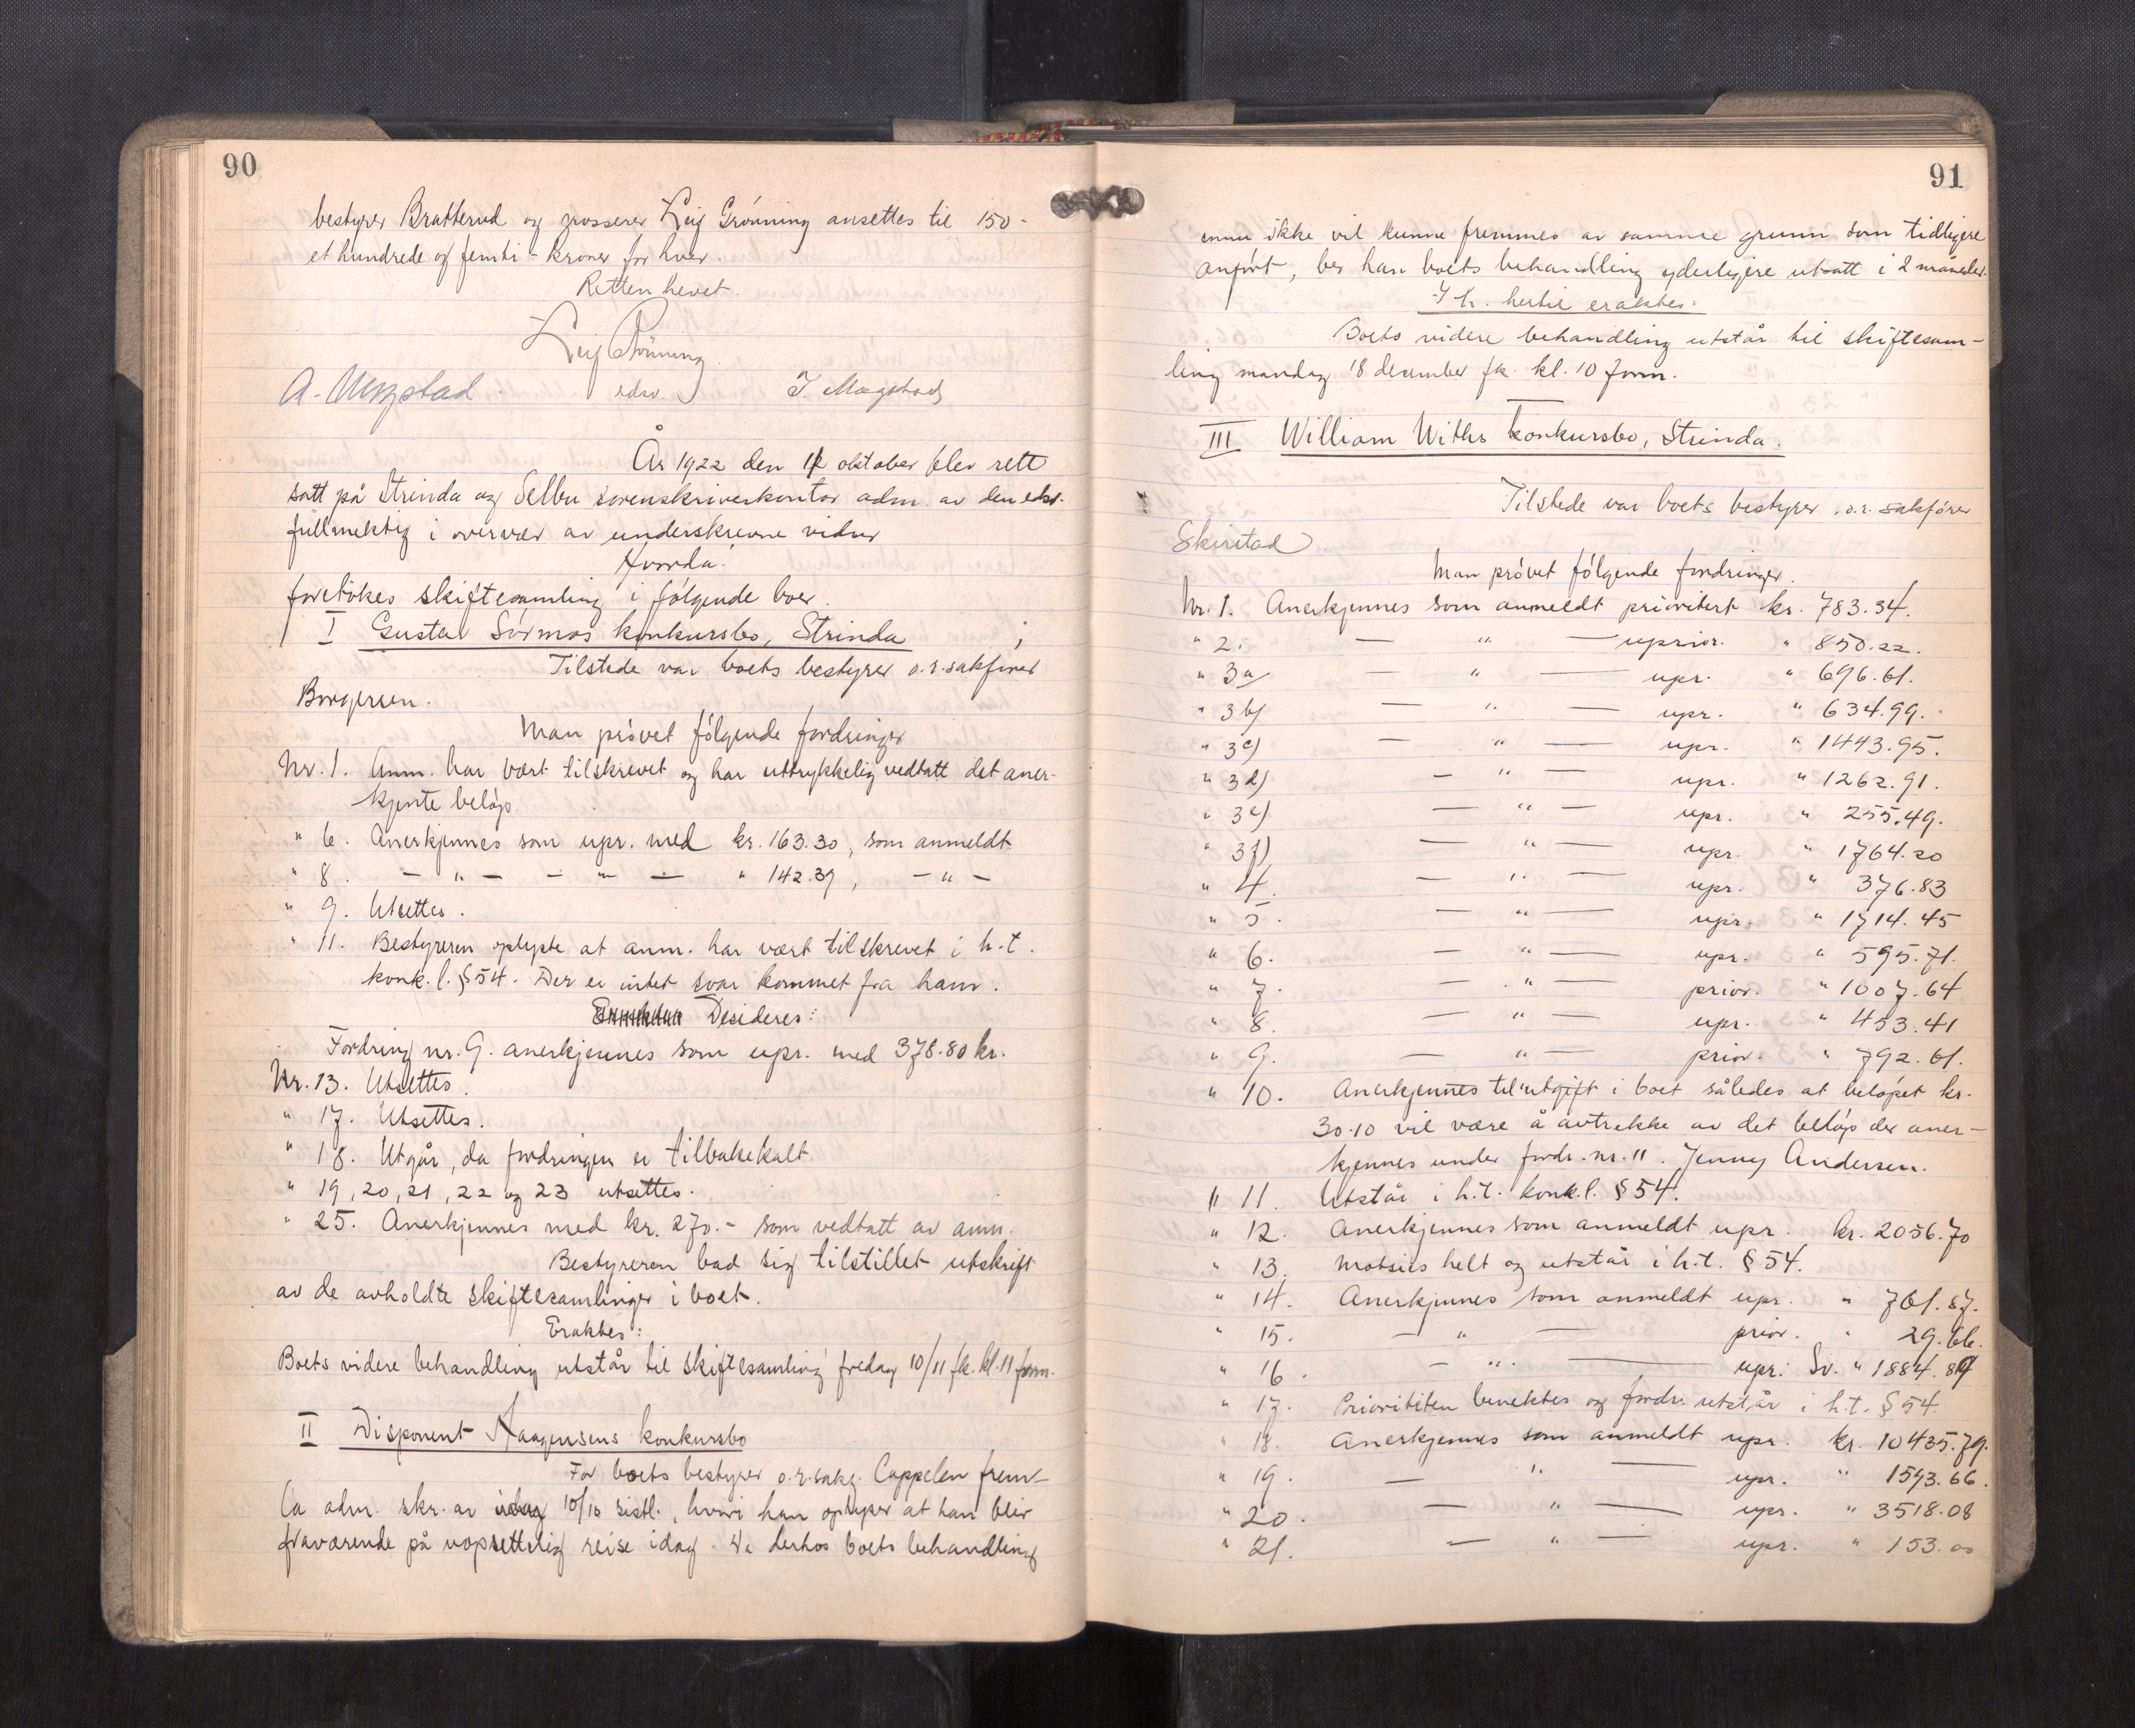 90
bestyrer Bratterud og grosserer Leif Grönning ansettes til 150 -
et hundrede og femti - kroner for hver.
Retten hevet.
Leif Grönning
edsv.
A. Mogstad J. Mogstad
År 1922 den 12 oktober blev rett
satt på Strinda og Selbu sorenskriverkontor adm. av den edsv.
fullmektig i overvær av underskrevne vidner
Hvorda:
foretokes skiftesamling i følgende boer.
I Gustav Sörmos konkursbo, Strinda ;
Tilstede var boets bestyrer o.r.sakfører
Borgersen.
Man prövet fölgende fordringer
Nr. 1. Anm. har vært tilskrevet og har uttrykkelig vedtatt det aner-
kjente belöp.
" 6. Anerkjennes som upr. med kr. 163.30, som anmeldt
" 8. — " — — " — " 142.39, — " —
" 9. Utsettes.
" 11. Bestyreren oplyste at anm. har vært tilskrevet i h.t.
konk.l. § 54. Der er intet svar kommet fra ham.
Desideres:
Fordring nr. 9. anerkjennes som upr. med 378.80 kr.
Nr. 13. Utsettes.
" 17. Utsettes.
" 18. Utgår, da fordringen er tilbakekalt.
" 19, 20, 21, 22 og 23 utsettes.
" 25. Anerkjennes med kr. 270.- som vedtatt av anm.
Bestyreren bad sig tilstillet utskrift
av de avholdte skiftesamlinger i boet.
Eraktes:
Boets videre behandling utstår til skiftesamling fredag 10/11 fk. kl. 11 form.
II Disponent Haagensens konkursbo
For boets bestyrer o.r.sakf. Cappelen frem-
la adm. skr. av 10/10 sistl., hvori han oplyser at han blir
fraværende på uopsettelig reise idag. Da derhos boets behandling
91
ennu ikke vil kunne fremmes av samme grunn som tidligere
anfört, ber han boets behandling yderligere utsatt i 2 måneder.
I h. hertil eraktes:
Boets videre behandling utstår til skiftesam-
ling mandag 18 desember fk. kl. 10 form.
III William Withs konkursbo, Strinda.
Tilstede var boets bestyrer, o.r. sakförer
Skirstad
Man prövet fölgende fordringer.
Nr. 1. Anerkjennes som anmeldt prioritert kr. 783.34.
" 2. — " — uprior. " 850.22.
" 3a) — " — upr. " 696.61.
" 3b) — " — upr. " 634.99.
" 3c) — " — upr. " 1443.95.
" 3d) — " — upr. " 1262.91.
" 3e) — " — upr. " 255.49.
" 3f) — " — upr. " 1764.20
" 4. — " — upr. " 376.83
" 5. — " — upr. " 1714.45
" 6. — " — upr. " 595.71.
" 7. — " — prior. " 1007.64
" 8. — " — upr. " 453.41
" 9. — " — prior. " 792.61.
" 10. Anerkjennes til utgift i boet således at belöpet kr.
30.10 vil være å avtrekke av det belöp der aner-
kjennes under fordr. nr. 11. Jenny Andersen.
" 11. Utstår i h.t. konk.l. § 54.
" 12. Anerkjennes som anmeldt upr. kr. 2056.70
" 13. Motsies helt og utstår i h.t. § 54.
" 14. Anerkjennes som anmeldt upr. " 761.87.
" 15. — " — prior. " 29.66.
" 16. — " — upr. Sv. " 1884.89
" 17. Prioriteten benektes og fordr. utstår i h.t. § 54.
" 18. Anerkjennes som anmeldt upr. kr. 10435.79.
" 19. — " — upr. " 1593.66.
" 20. — " — upr. " 3518.08
" 21. — " — upr. " 153.00